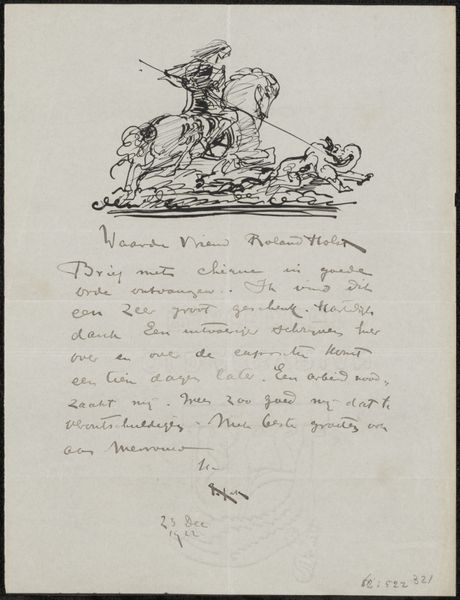 Waarde Vriend Roland Holst
Brief met chèque in goede
orde ontvangen. Ik vind dit
een zeer groot geschenk. Hartelijk
dank Een uitvoerige schrijven hier
over en over de expositie komt
een tien dagen later. Een arbeid nood-
zaakt mij. Wees zoo goed mij dat te
verontschuldigen. Met beste groeten ook
aan Mevrouw
23 Dec
1922
321